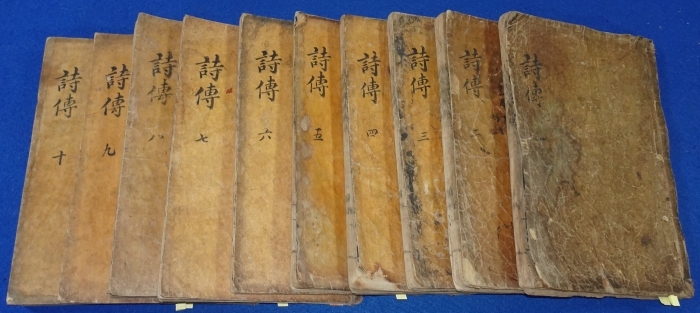 詩傳 一
詩傳 二
詩傳 三
詩傳 四
詩傳 五
詩傳 六
詩傳 七
詩傳 八
詩傳 九
詩傳 十